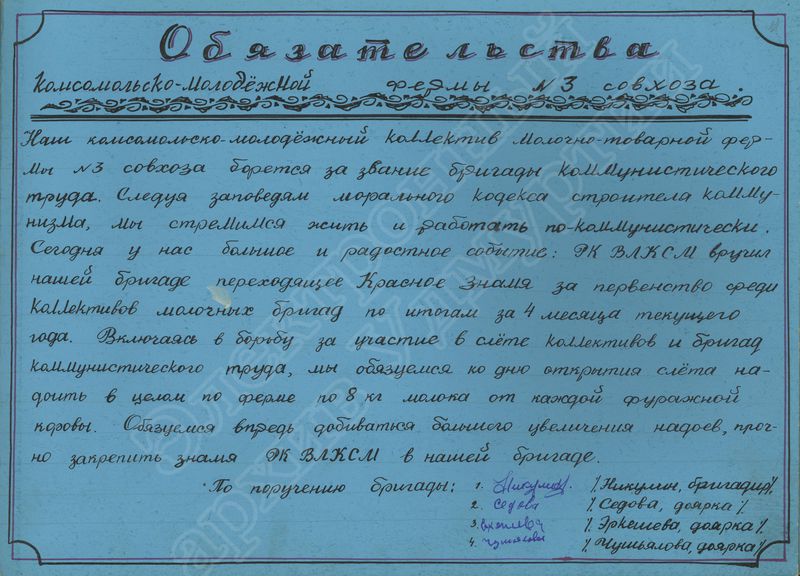 Обязательства
Комсомольско-молодёжной фермы №3 совхоза.
Наш комсомольско-молодёжный коллектив молочно-товарной фер-
мы №3 совхоза борется за звание бригады коммунистического
труда. Следуя заповедям морального кодекса строителя комму-
низма, мы стремимся жить и работать по-коммунистически.
Сегодня у нас большое и радостное событие: РК ВЛКСМ вручил
нашей бригаде переходящее Красное Знамя за первенство среди
коллективов молочных бригад по итогам за 4 месяца текущего
года. Включаясь в борьбу за участие в слёте коллективов и бригад
коммунистического труда, мы обязуемся ко дню открытия слёта на-
доить в целом по ферме по 8 кг молока от каждой фуражной
коровы. Обязуемся впредь добиваться большого увеличения надоев, проч-
но закрепить знамя РК ВЛКСМ в нашей бригаде.
По поручению бригады: 1. Никулин /Никулин, бригадир/,
2. Седова /Седова, доярка/.
3. /Эркешева, доярка/.
4. /Чушьялова, доярка/
Электронный
архив Удмуртии